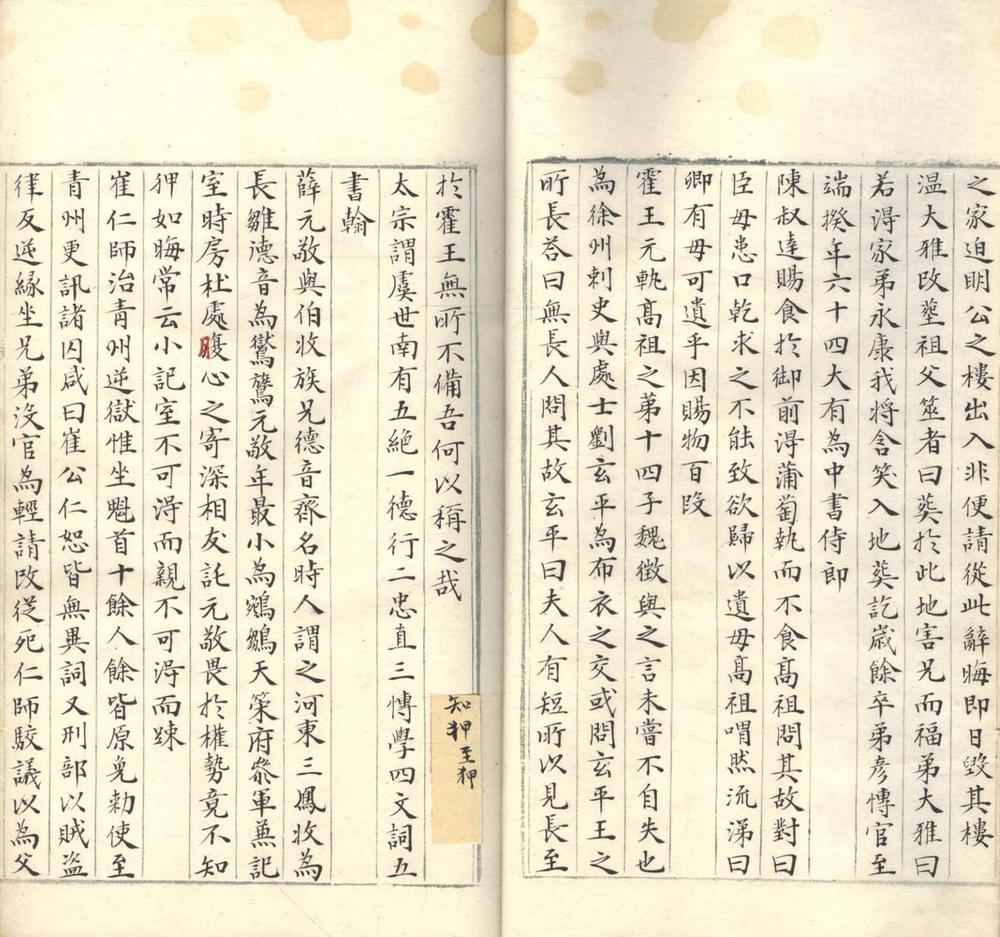 之家迫明公之樓出入非便請從此辭晦即日毀其樓
温大雅改塟祖父筮者曰葬於此地害兄而福弟大雅曰
若得家弟永康我将含笑入地葬訖歳餘卒弟彦愽官至
端揆年六十四大有為中書侍郎
陳叔達賜食於御前得蒲萄執而不食髙祖問其故對曰
臣母患口乾求之不能致欲歸以遺母髙祖喟然流涕曰
卿有母可遺乎因賜物百段
霍王元軌髙祖之第十四子魏徴與之言未嘗不自失也
為徐州刺史與處士劉玄平為布衣之交或問玄平王之
所長荅曰無長人問其故玄平曰夫人有短所以見長至
於霍王無所不備吾何以稱之哉
太宗謂虞世南有五絶一德行二忠直三愽學四文詞五
書翰
薛元敬與伯收族兄德音齊名時人謂之河東三鳳收為
長雛德音為鸑鷟元敬年最小為鵷鶵天策府叅軍兼記
室時房杜處腹心之寄深相友託元敬畏於權勢竟不知
狎如晦常云小記室不可得而親不可得而踈
崔仁師治青州逆獄惟坐魁首十餘人餘皆原免勅使至
青州更訊諸囚咸曰崔公仁恕皆無異詞又刑部以賊盗
律反逆緣坐兄弟沒官為輕請改從死仁師駮議以為父
知狎至狎